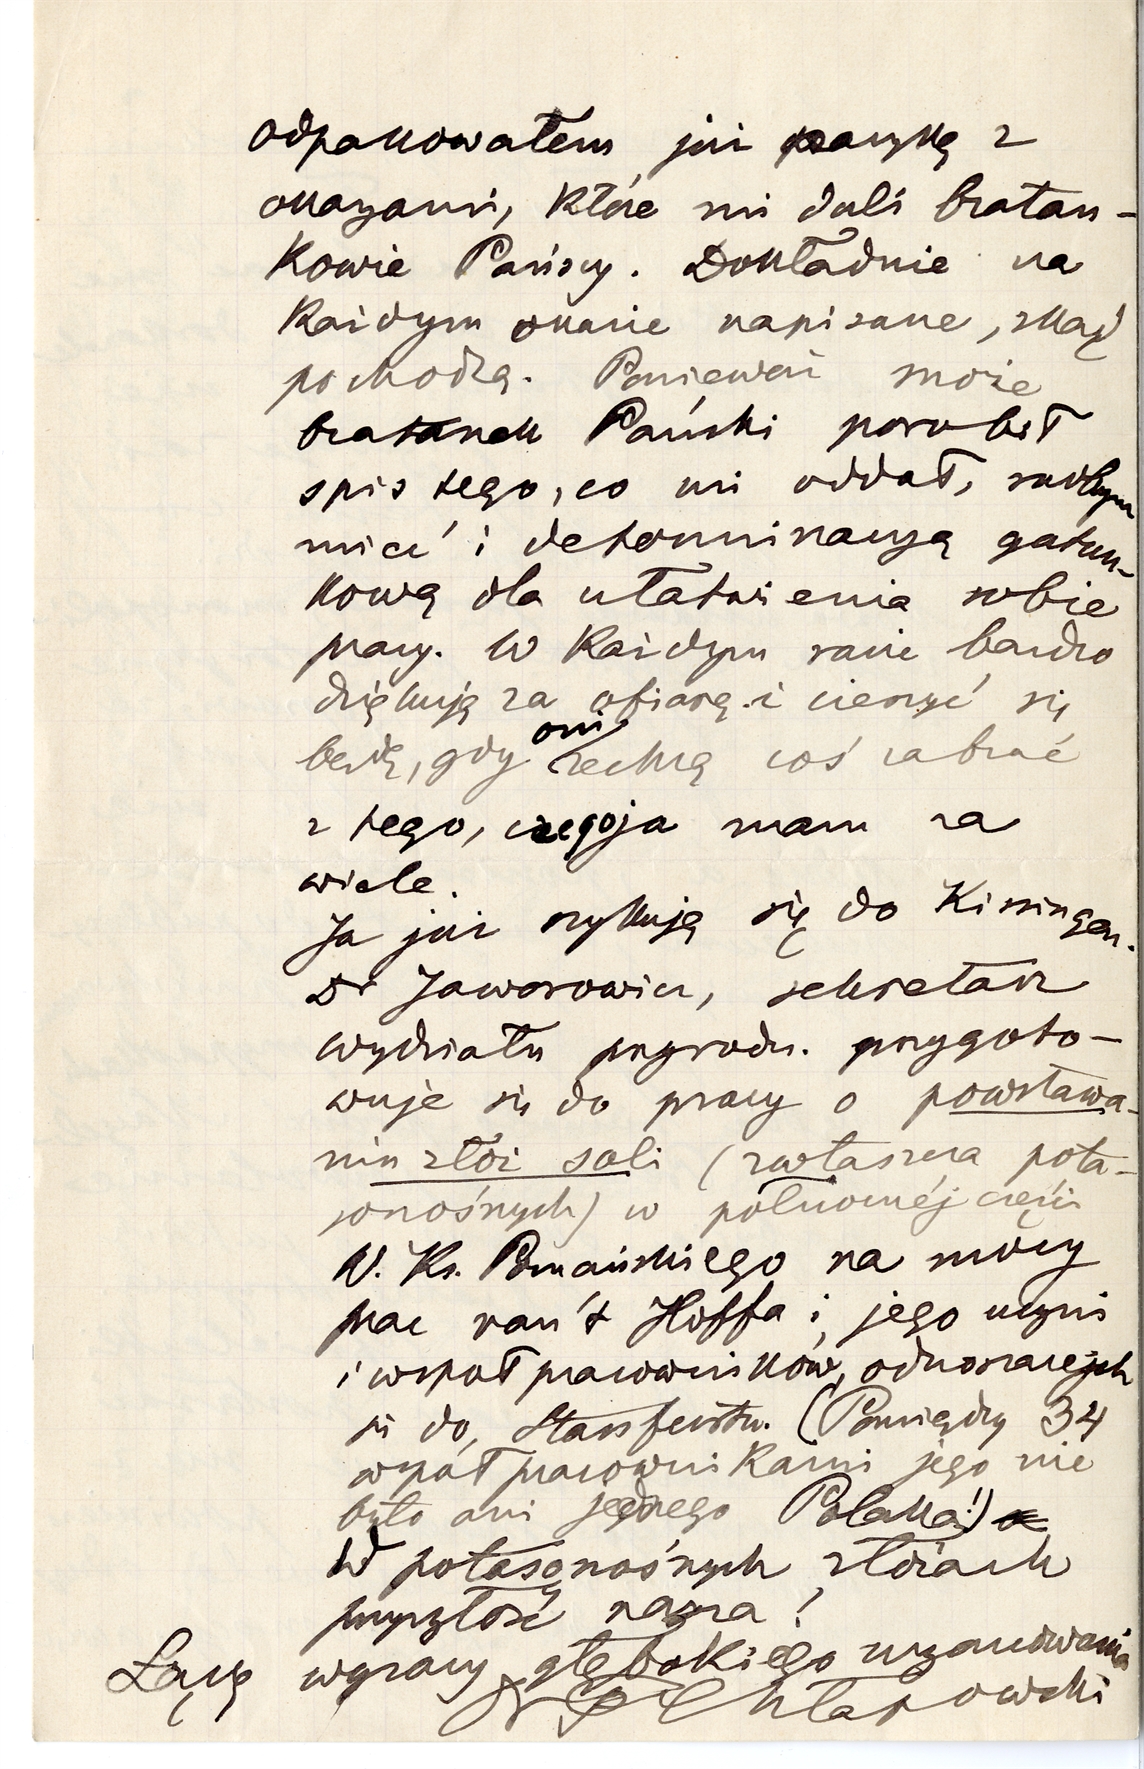 odpakowałem już paczkę z
okazami, które mi dali bratan-
kowie Pańscy. Dokładnie na
każdym okazie napisane, skąd
pochodzą. Ponieważ może
bratanek Pański porobił
spis tego, co mi oddał, radbym
mieć i determinacyą gatun-
kową dla ułatwienia sobie
pracy. W każdym razie bardzo
dziękuję za ofiarę i cieszyć się
będę, gdy oni zechcą coś zabrać
z tego, czego ja mam za
wiele.
Ja już szykuję się do Kissingen.
Dr Jaworowicz, sekretarz
wydziału przyrodn. przygoto-
wuje się do pracy o powstawa-
niu złóż soli (zwłaszcza pota-
sonośnych) w północnéj części
W. Ks. Poznańskiego na mocy
prac van't Hoffa i jego uczni
i współpracowników, odnoszących
się do Stassfurtu. (Pomiędzy 34
współpracownikami jego nie
było ani jednego Polaka!)
W potasonośnych złóżach
przyszłość nasza!
Łączę wyrazy głębokiego uszanowania
F Chłapowski